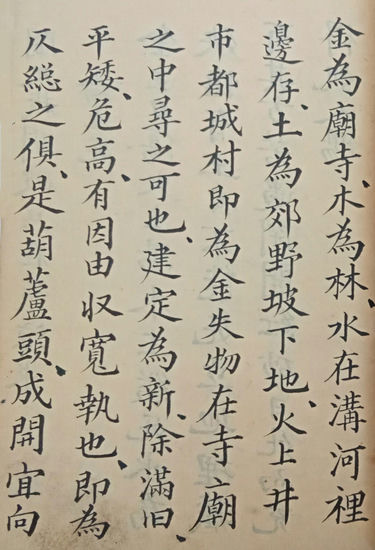 金為廟寺、木為林、水在溝河裡
邊存、土為郊野坡下地、火上井
市都城村即為金失物在寺廟
之中尋之可也、建定為新、除滿旧、
平矮、危高、有因由収寬執也、即為
仄総之俱、是葫蘆頭、成開宜向